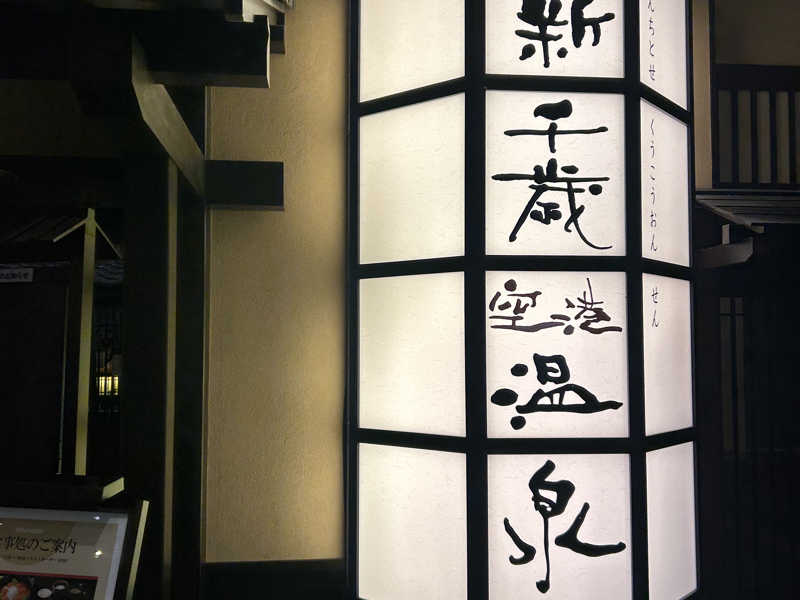 新
千歳
空港
温
泉
んちとせ
くうこうおん
せん
のお知らせ
事処のご案内